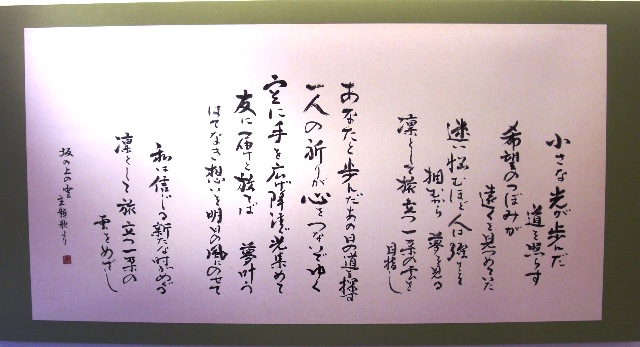 小さな光が歩んだ
道を照らす
希望のつぼみが
遠くを見つめていた
迷い悩むほど人は強さを
掴むから 夢を見る
凛として旅立つ一朶の雲を
目指し
あなたと歩んだあの日の道を探す
一人の祈りが心をつないでゆく
空に手を広げ降り注ぐ光集めて
友に届けと放てば 夢叶う
はてなき想いを明日の風にのせて
私は信じる新たな時がめぐる
凛として旅立つ一朶の
雲をめざし
坂の上の雲 主題歌より